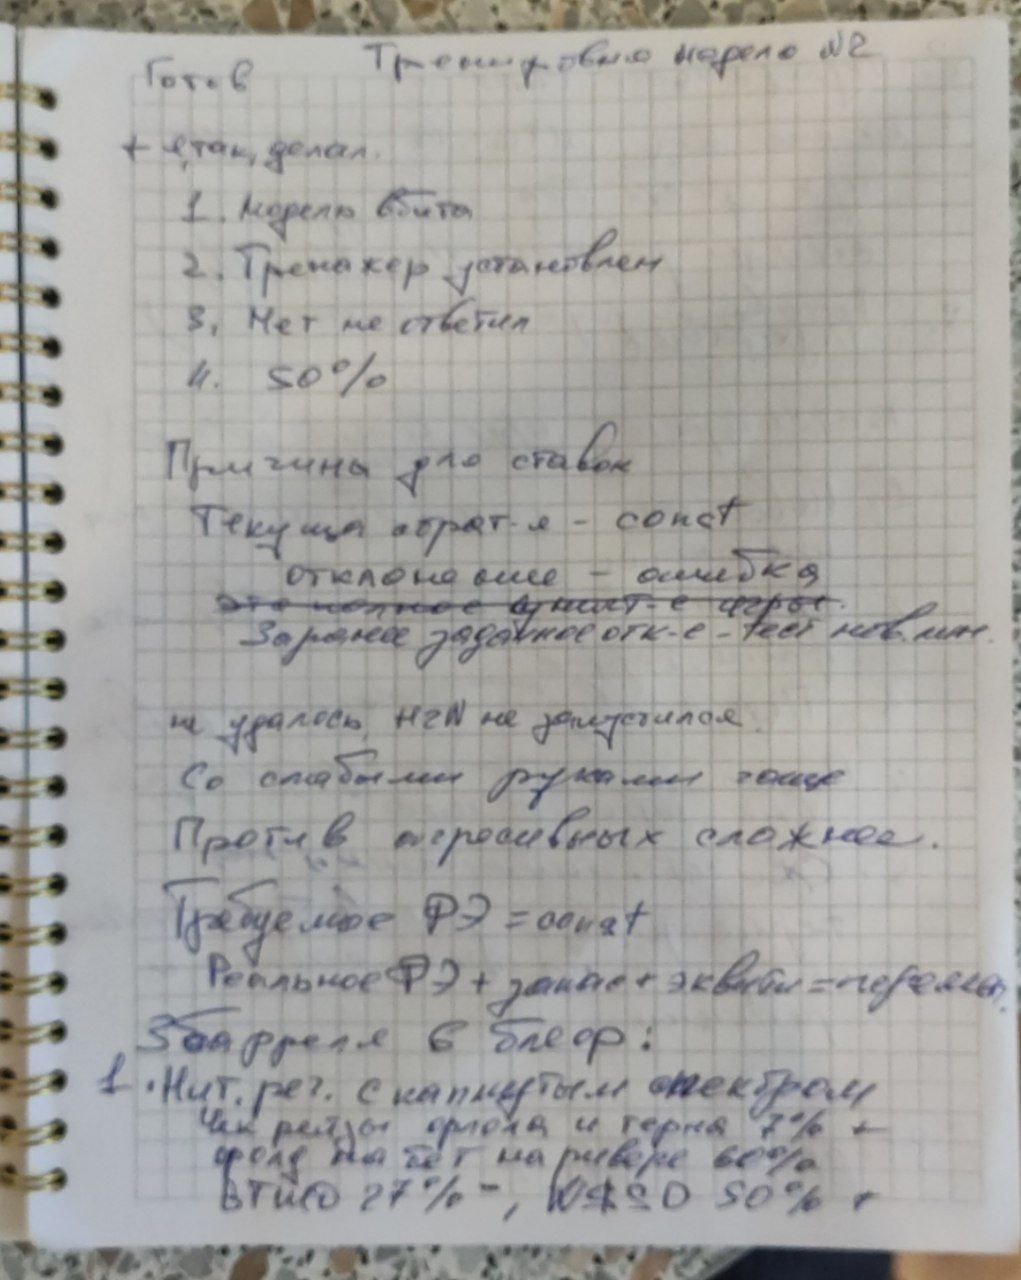 Тренировка неделя №2
Готов
+ я, так, делал.
1. Неделю вбита
2. Тренажер установлен
3. Нет не ответил
4. 50%
Причины для ставок
Текуща страт-я - const
отклонение - ошибка
это полное е игры.
Заранее заданное отк-е - тест нов. 
не удалось, H2N не запустился.
Со слабыми руками чаще
Против агресивных сложнее.
Требуемое ФЭ = const
Реальное ФЭ + запас + эквити =
3 барреля в блеф:
1. Нит. рег. с капнутым спектром
Чек рейзы флопа и терна 7% +
фолд на бет на ривере 60%
ВТШО 27% -, 50% +